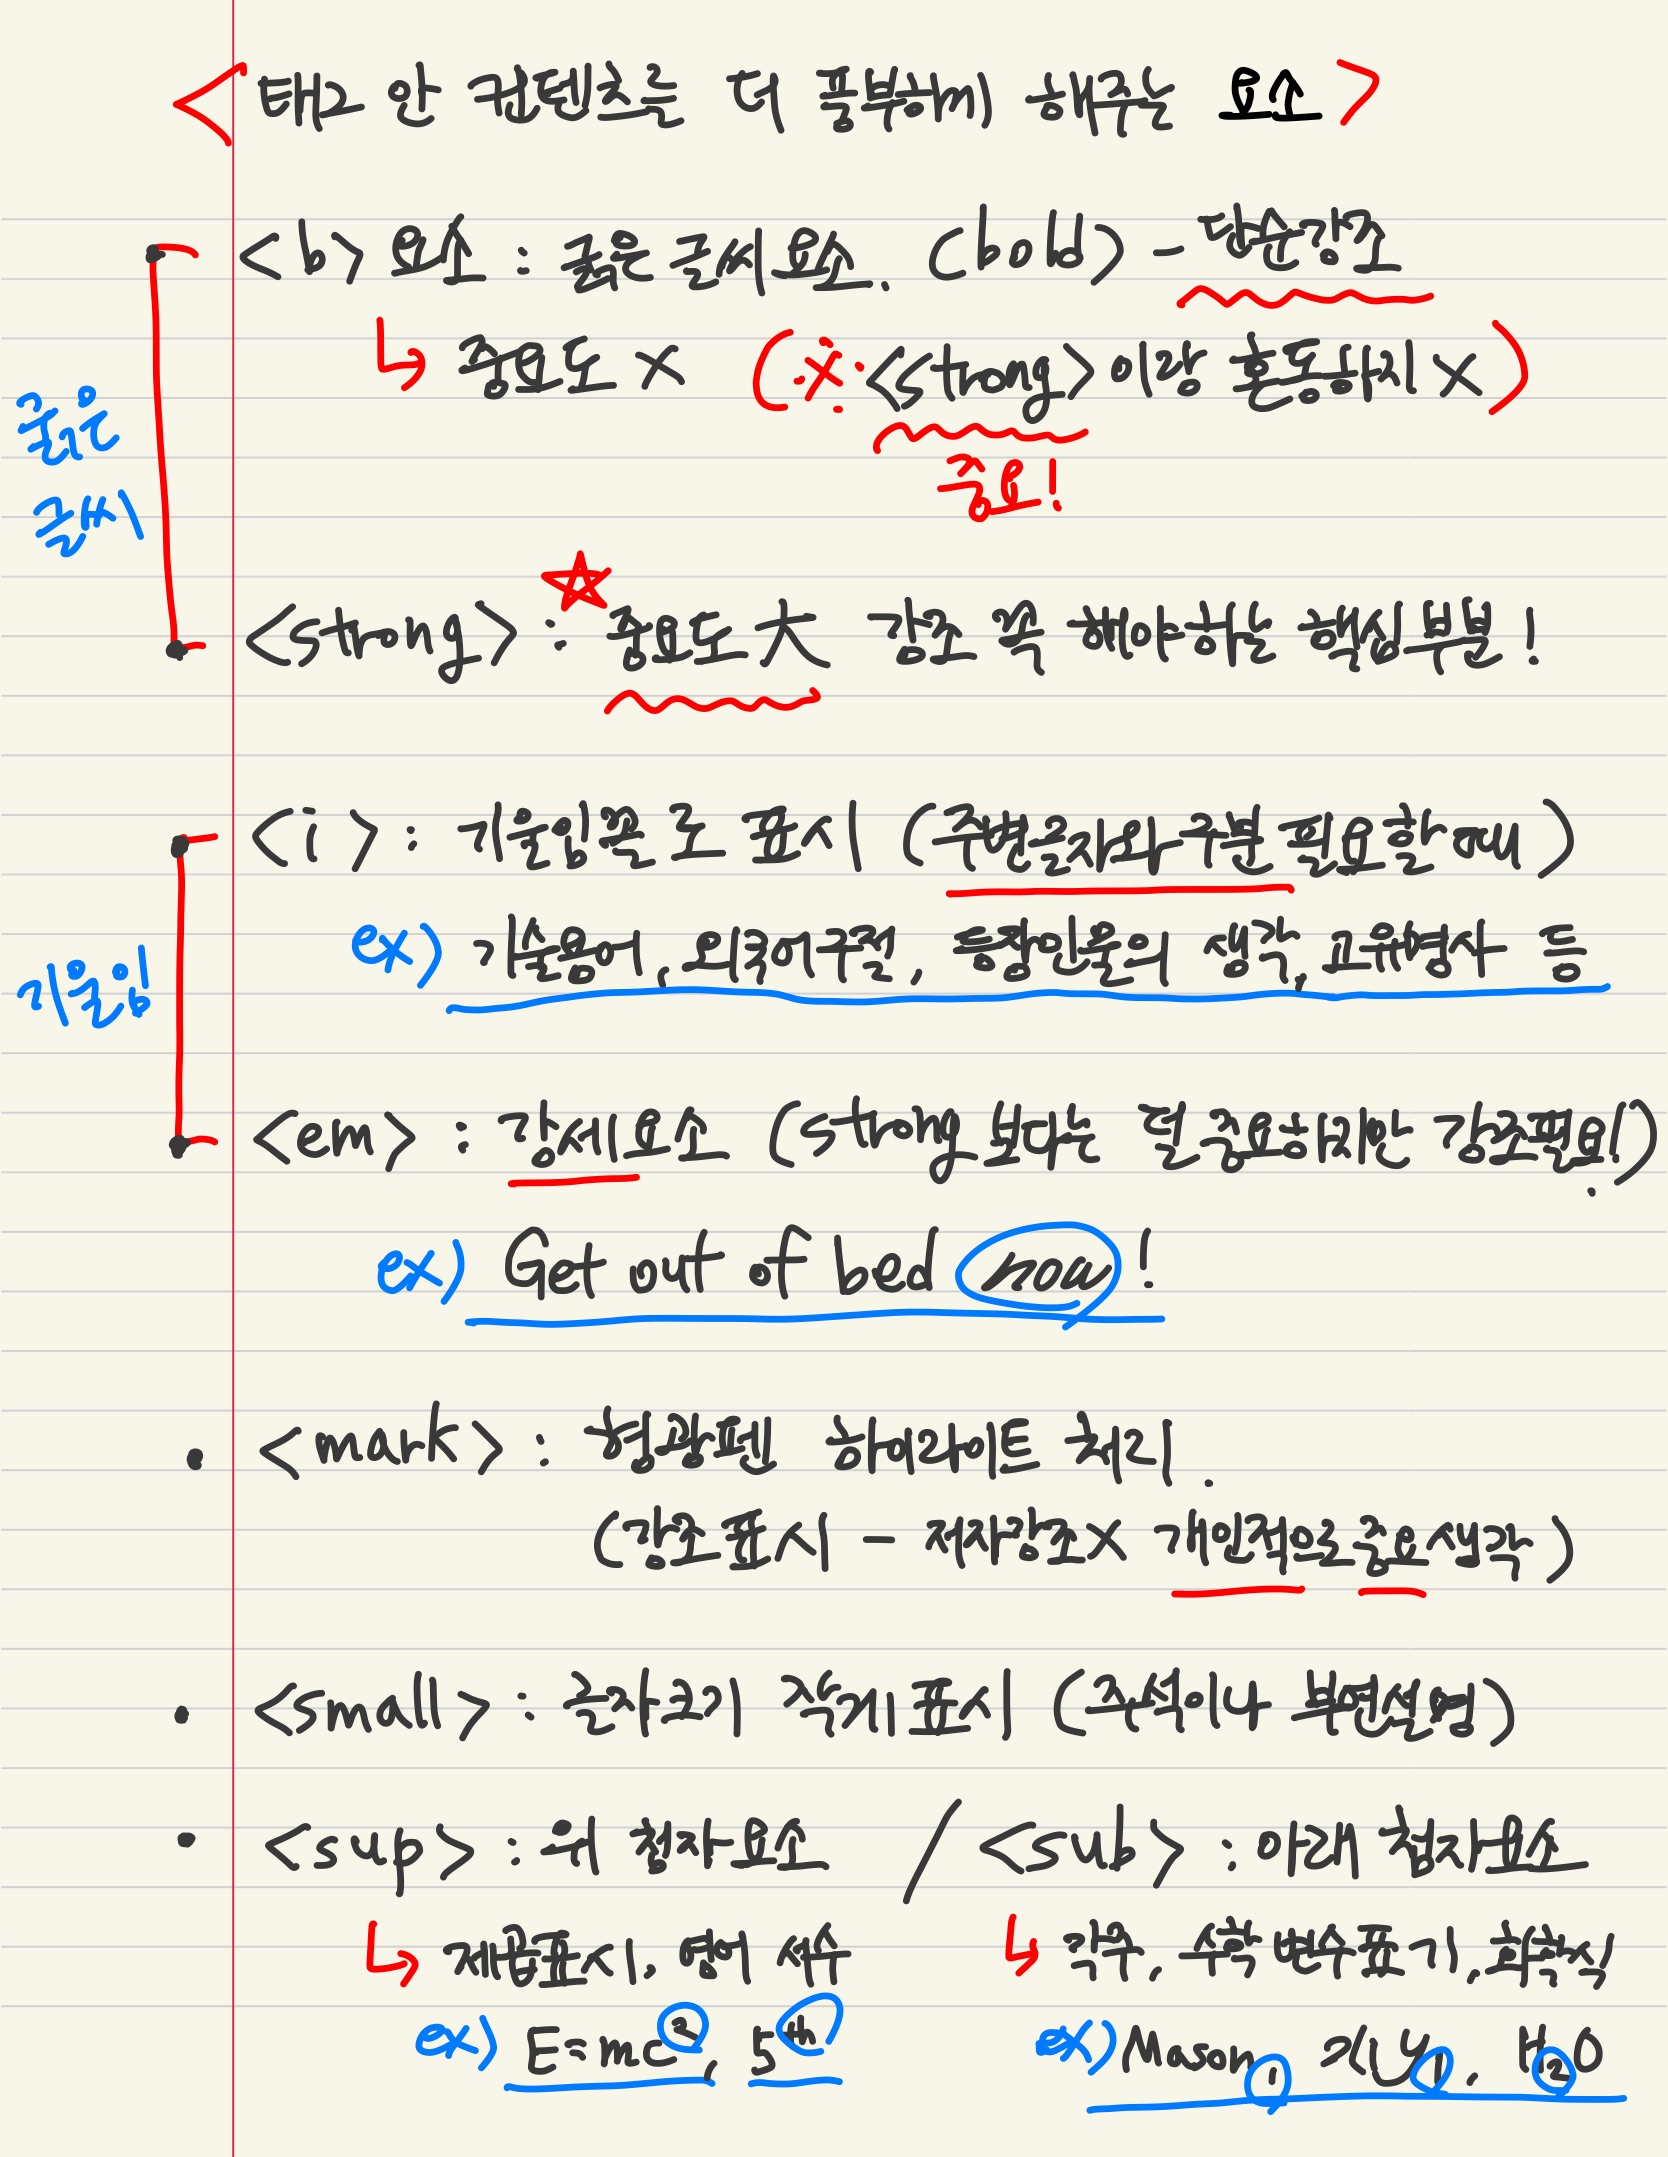 <태그 안 컨텐츠를 더 풍부하게 해주는 요소>
<b> 요소 : 굵은 글씨 요소. (bold) - 단순강조
↳ 중요도 X (※ <strong> 이랑 혼동하지 X)
중요!
굵은
글씨
<strong> : ☆ 중요도 大 강조 꼭 해야하는 핵심부분!
<i> : 기울임꼴로 표시 (주변글자와 구분 필요할때)
ex) 기술용어, 외국어구절, 등장인물의 생각, 고유명사 등
기울임
<em> : 강세요소 (strong 보다는 덜 중요하지만 강조필요!)
ex) Get out of bed now!
• <mark> : 형광펜 하이라이트 처리.
(강조표시 - 저자강조X 개인적으로 중요 생각)
• <small> : 글자크기 작게 표시 (주석이나 부연설명)
• <sup> : 위 첨자요소 / <sub> : 아래 첨자요소
↳ 제곱표시, 영어 서수 ↳ 각주, 수학 변수표기, 화학식
ex) E=mc², 5th ex) Mason₁ y₁, H₂O